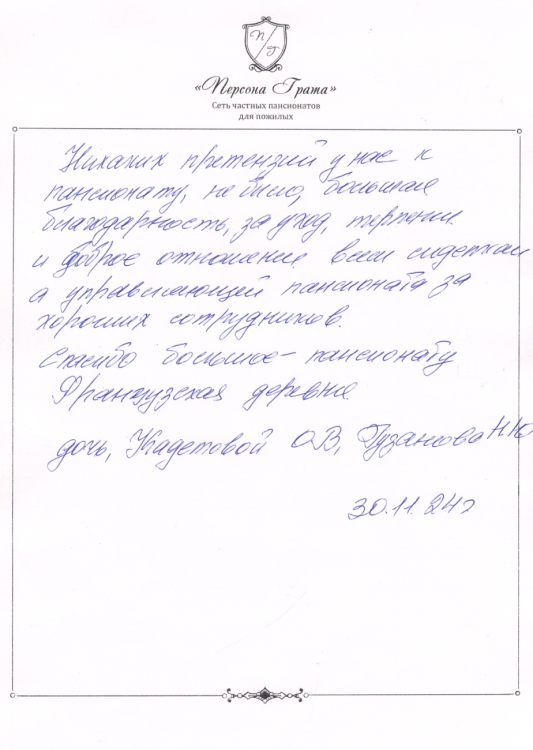 П Г
«Персона Грата»
Сеть частных пансионатов
для пожилых
Никаких претензий у нас к
пансионату, не было, большая
благодарность, за уход, терпение
и доброе отношение всем сиделкам
а управляющей пансионата за
хороших сотрудников.
Спасибо большое - пансионату
Французская деревня
дочь, Кадетовой О В, Гузанова Н Ю
30.11.24г